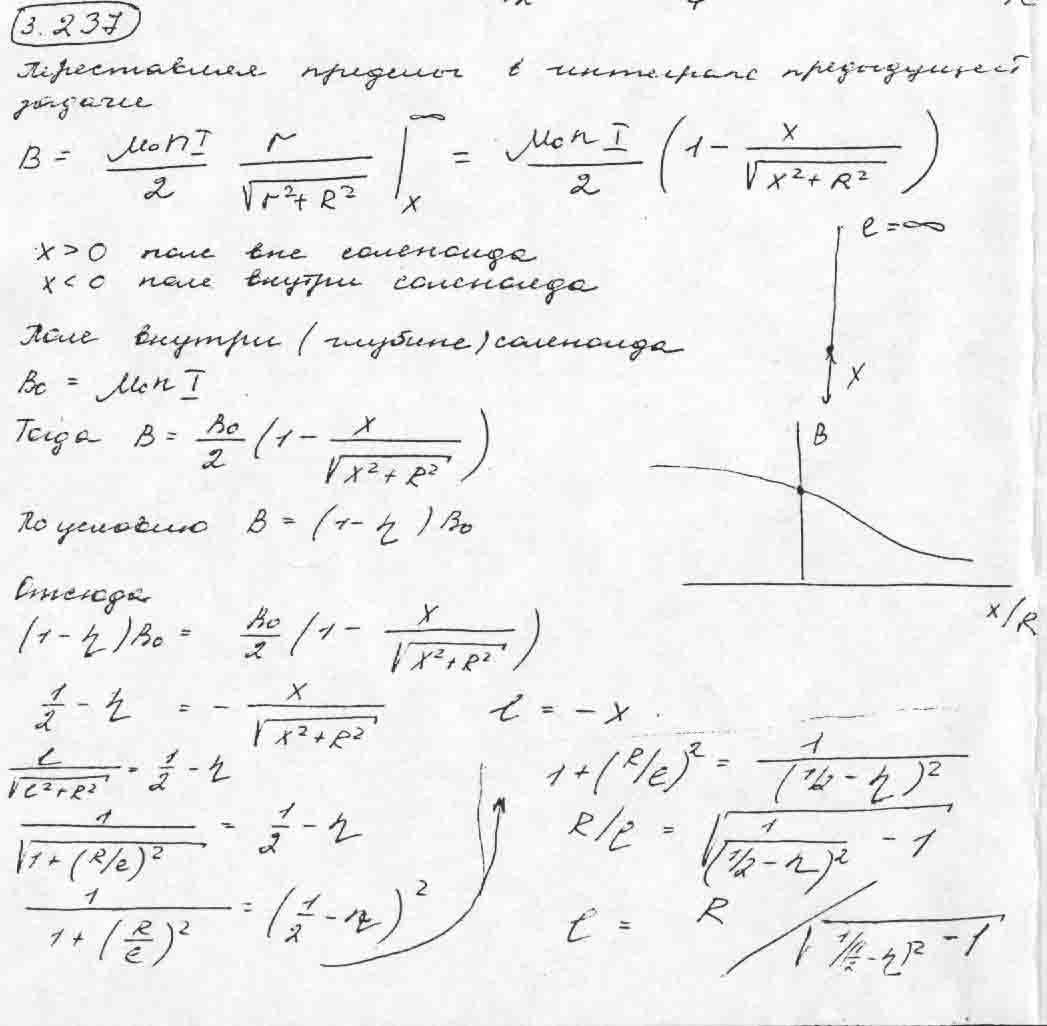 3.237
Переставляя пределы в интеграле предыдущей
задаче
B = μ₀nI/2 r/√(r²+R²) |ₓ^∞ = μ₀nI/2 (1 - x/√(x²+R²))
x>0 поле вне соленоида
x<0 поле внутри соленоида
l=∞
x
Поле внутри (глубине) соленоида
B₀ = μ₀nI
Тогда B = B₀/2 (1 - x/√(x²+R²))
B
x/R
По условию B = (1-η)B₀
Отсюда
(1-η)B₀ = B₀/2 (1 - x/√(x²+R²))
1/2 - η = - x/√(x²+R²)
l/√(l²+R²) = 1/2 - η
1/√(1+(R/l)²) = 1/2 - η
1/(1+(R/l)²) = (1/2 - η)²
l = -x
1+(R/l)² = 1/(1/2-η)²
R/l = √(1/(1/2-η)² - 1)
l = R/√(1/(1/2-η)² - 1)